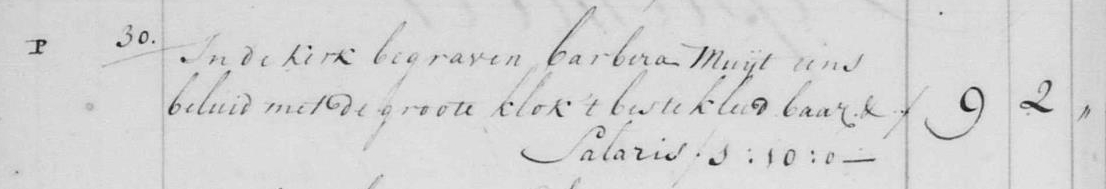 P 30. In de kerk begraven barbera Muijt eens
beluid met de groote klok 't beste kleed baar. & / 9 2 "
Salaris / 3 : 10 : 0 —